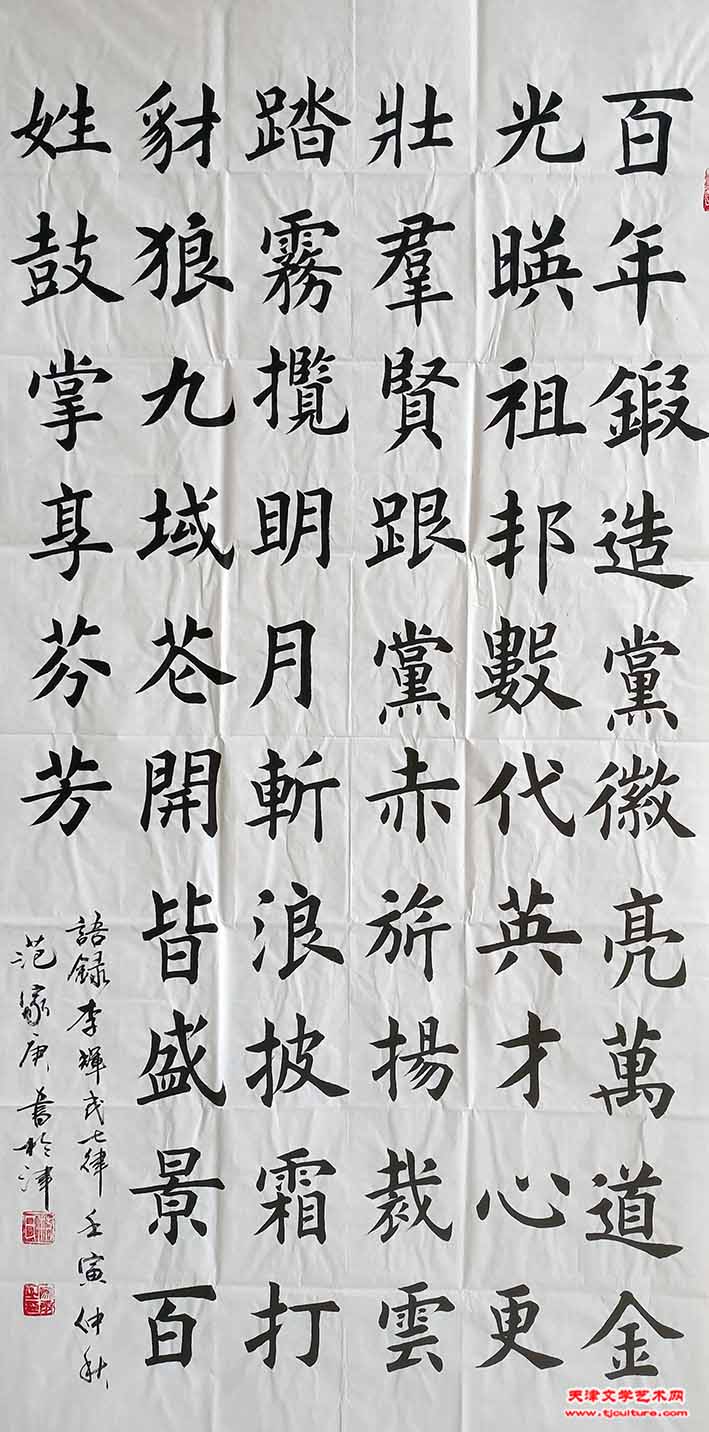 百年鍛造黨徽亮萬道金
光暎祖邦數代英才心更
壯羣賢跟黨赤旂揚裁雲
踏霧攬明月斬浪披霜打
豺狼九域花開皆盛景百
姓鼓掌享芬芳
語録李輝七律壬寅仲秋
范家庚書於津
天津文学艺术网
www.tjculture.com